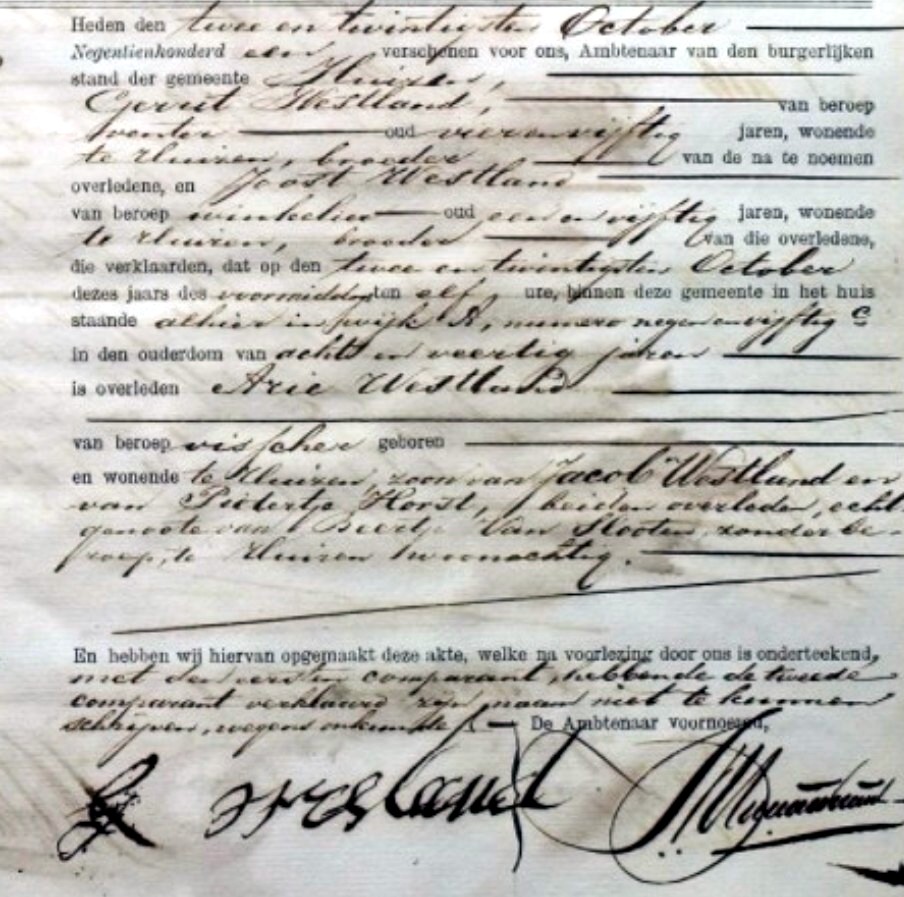 Heden den twee en twintigsten October
Negentienhonderd een verschenen voor ons, Ambtenaar van den burgerlijken
stand der gemeente Huizen,
Gerrit Westland, van beroep
oud vier en vijftig jaren, wonende
te Huizen, broeder van de na te noemen
overledene, en Joost Westland
van beroep winkelier oud een en vijftig jaren, wonende
te Huizen, broeder van die overledene,
die verklaarden, dat op den twee en twintigsten October
dezes jaars des voormiddags ten elf ure, binnen deze gemeente in het huis
staande alhier in wijk A, numero negen en vijftig c
in den ouderdom van acht en veertig jaren
is overleden Arie Westland
van beroep visscher geboren
en wonende te Huizen, zoon van Jacob Westland en
van Pietertje Horst, beiden overleden, echt-
genoote van Beertje van Slooten, zonder be-
roep, te Huizen woonachtig.
En hebben wij hiervan opgemaakt deze akte, welke na voorlezing door ons is onderteekend,
met den eersten comparant, hebbende de tweede
comparant verklaard zijn naam niet te kunnen
schrijven, wegens onkunde De Ambtenaar voornoemd,
G Westland